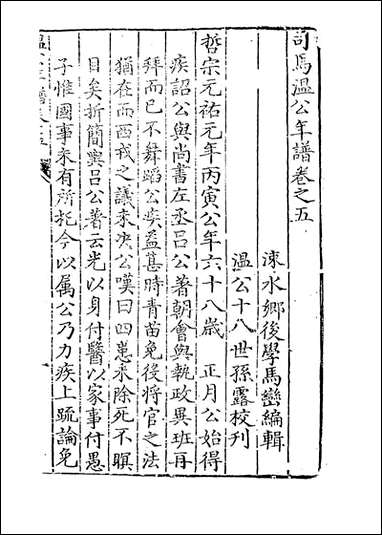 司馬溫公年譜卷之五
涑水鄉後學馬巒編輯
溫公十八世孫露校刊
哲宗元祐元年丙寅公年六十八歲　正月公始得
疾詔公與尚書左丞呂公著朝會與執政異班再
拜而已不舞蹈公疾益甚時青苗免役將官之法
猶在而西戎之議未決公嘆曰四患未除死不瞑
目矣折簡與呂公著云光以身付醫以家事付愚
子惟國事未有所托今以属公乃力疾上疏論免